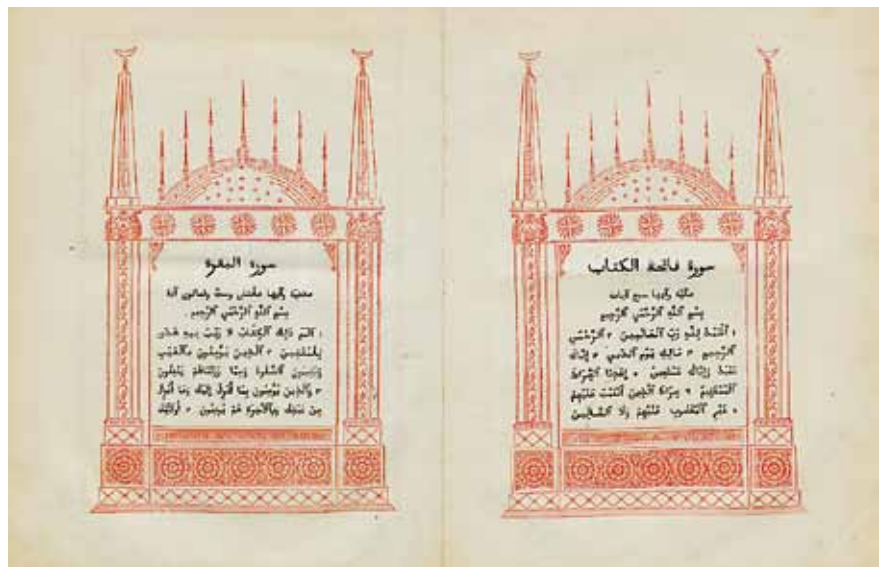 سورة فاتحة الكتاب
مكية وآيها سبع آيات
بِسْمِ ٱللَّهِ ٱلرَّحْمٰنِ ٱلرَّحِيمِ
ٱلْحَمْدُ لِلَّهِ رَبِّ ٱلْعَالَمِينَ * ٱلرَّحْمٰنِ
ٱلرَّحِيمِ * مَالِكِ يَوْمِ ٱلدِّينِ * إِيَّاكَ
نَعْبُدُ وَإِيَّاكَ نَسْتَعِينُ * اِهْدِنَا ٱلصِّرَاطَ
ٱلْمُسْتَقِيمَ * صِرَاطَ ٱلَّذِينَ أَنْعَمْتَ عَلَيْهِمْ
* غَيْرِ ٱلْمَغْضُوبِ عَلَيْهِمْ وَلَا ٱلضَّالِّينَ
سورة البقرة
مدنية وآيها مائتان وستة وثمانون آية
بِسْمِ ٱللَّهِ ٱلرَّحْمٰنِ ٱلرَّحِيمِ
الم ذَلِكَ ٱلْكِتَابُ لَا رَيْبَ فِيهِ هُدًى
لِلْمُتَّقِينَ * ٱلَّذِينَ يُؤْمِنُونَ بِٱلْغَيْبِ
وَيُقِيمُونَ ٱلصَّلٰوةَ وَمِمَّا رَزَقْنَاهُمْ يُنْفِقُونَ
* وَٱلَّذِينَ يُؤْمِنُونَ بِمَا أُنْزِلَ إِلَيْكَ وَمَا أُنْزِلَ
مِنْ قَبْلِكَ وَبِٱلْآخِرَةِ هُمْ يُوقِنُونَ * أُولَٰئِكَ